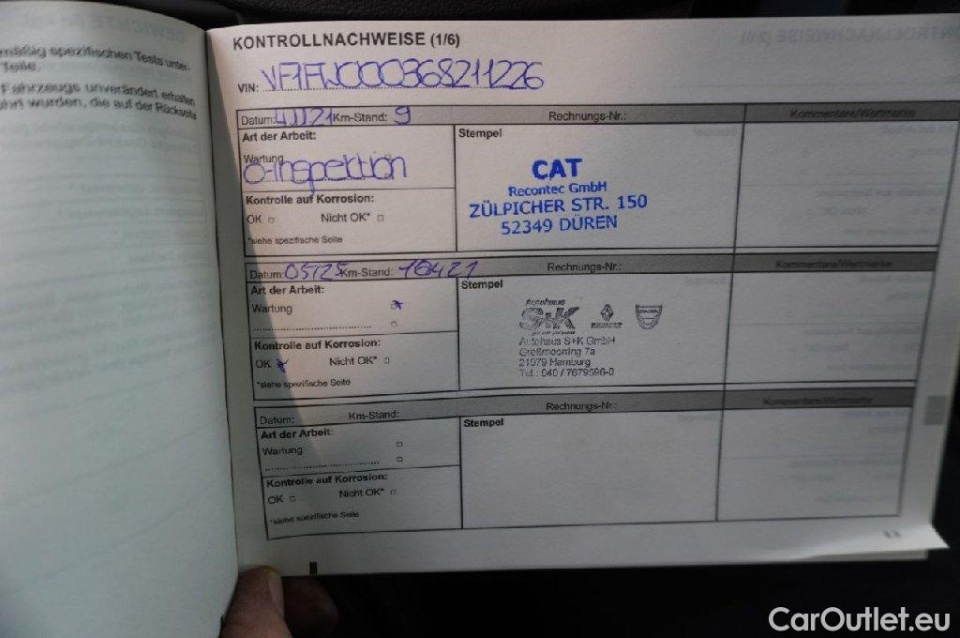 mäßig spezifischen Tests unter-
Teile.
Fahrzeugs unverändert erhalten
hrt wurden, die auf der Rückseite
KONTROLLNACHWEISE (1/6)
VIN: VF1FW000368211226
Datum: Km-Stand: 9 Rechnungs-Nr.: Kommentare/Wertmarke
Art der Arbeit:
Wartung
0-Inspektion
Kontrolle auf Korrosion:
OK □ Nicht OK* □
*siehe spezifische Seite
Stempel
CAT
Recontec GmbH
ZÜLPICHER STR. 150
52349 DÜREN
Datum: 05/25 Km-Stand: 16421 Rechnungs-Nr.: Kommentare/Wertmarke
Art der Arbeit:
Wartung
Kontrolle auf Korrosion:
OK Nicht OK* □
*siehe spezifische Seite
Stempel
Autohaus
S+K
RENAULT
DACIA
Autohaus S+K GmbH
Großmoorring 7a
21079 Hamburg
Tel.: 040 / 7679696-0
Datum: Km-Stand: Rechnungs-Nr.: Kommentare/Wertmarke
Art der Arbeit:
Wartung □
□
Kontrolle auf Korrosion:
OK □ Nicht OK* □
*siehe spezifische Seite
Stempel
CarOutlet.eu